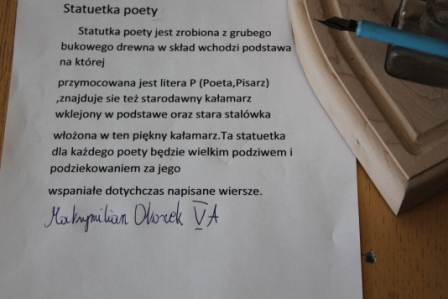 Statuetka poety
Statutka poety jest zrobiona z grubego
bukowego drewna w skład wchodzi podstawa
na której
przymocowana jest litera P (Poeta,Pisarz)
,znajduje sie też starodawny kałamarz
wklejony w podstawe oraz stara stalówka
włożona w ten piękny kałamarz.Ta statuetka
dla każdego poety będzie wielkim podziwem i
podziekowaniem za jego
wspaniałe dotychczas napisane wiersze.
Maksymilian Oborek V A